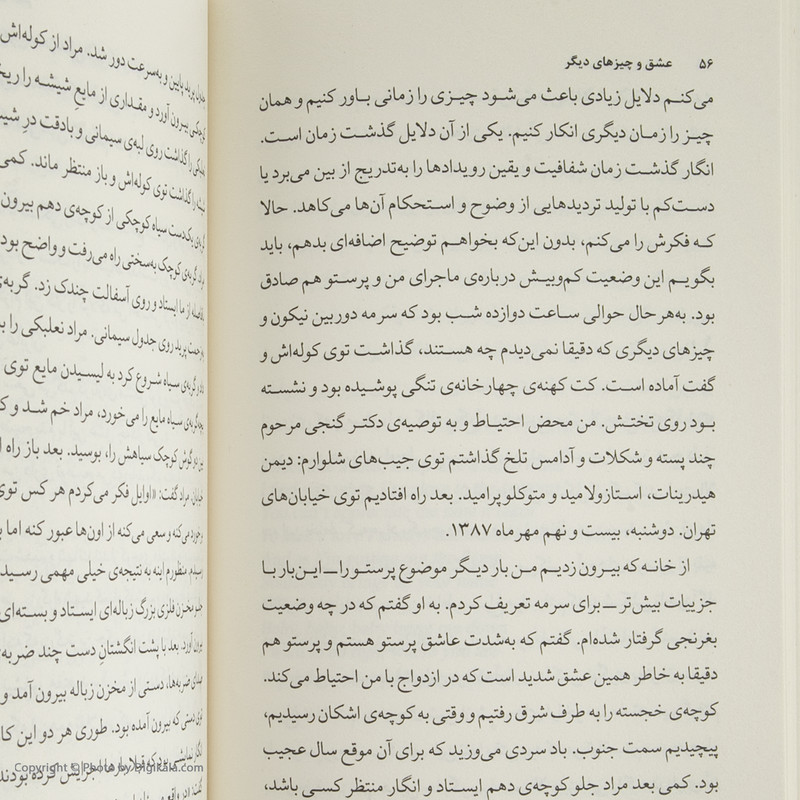 ۵۶ عشق و چیزهای دیگر
می‌کنم دلایل زیادی باعث می‌شود چیزی را زمانی باور کنیم و همان
چیز را زمان دیگری انکار کنیم. یکی از آن دلایل گذشت زمان است.
انگار گذشت زمان شفافیت و یقین رویدادها را به‌تدریج از بین می‌برد یا
دست‌کم با تولید تردیدهایی از وضوح و استحکام آن‌ها می‌کاهد. حالا
که فکرش را می‌کنم، بدون این‌که بخواهم توضیح اضافه‌ای بدهم، باید
بگویم این وضعیت کم‌وبیش درباره‌ی ماجرای من و پرستو هم صادق
بود. به‌هر حال حوالی ساعت دوازده شب بود که سرمه دوربین نیکون و
چیزهای دیگری که دقیقا نمی‌دیدم چه هستند، گذاشت توی کوله‌اش و
گفت آماده است. کت کهنه‌ی چهارخانه‌ی تنگی پوشیده بود و نشسته
بود روی تختش. من محض احتیاط و به توصیه‌ی دکتر گنجی مرحوم
چند پسته و شکلات و آدامس تلخ گذاشتم توی جیب‌های شلوارم: دیمن
هیدرینات، استازولامید و متوکلوپرامید. بعد راه افتادیم توی خیابان‌های
تهران. دوشنبه، بیست و نهم مهر ماه ۱۳۸۷.
از خانه که بیرون زدیم من بار دیگر موضوع پرستو را ــ این‌بار با
جزییات بیش‌تر ــ برای سرمه تعریف کردم. به او گفتم که در چه وضعیت
بغرنجی گرفتار شده‌ام. گفتم که به‌شدت عاشق پرستو هستم و پرستو هم
دقیقا به خاطر همین عشق شدید است که در ازدواج با من احتیاط می‌کند.
کوچه‌ی خجسته را به طرف شرق رفتیم و وقتی به کوچه‌ی اشکان رسیدیم،
پیچیدیم سمت جنوب. باد سردی می‌وزید که برای آن موقع سال عجیب
بود. کمی بعد مراد جلو کوچه‌ی دهم ایستاد و انگار منتظر کسی باشد،
پایین و به‌سرعت دور شد. مراد از کوله‌اش
بیرون آورد و مقداری از مایع شیشه را
گذاشت روی لبه‌ی سیمانی و بادقت درِ
گذاشت توی کوله‌اش و باز منتظر ماند. کمی
یکدست سیاه کوچکی از کوچه‌ی دهم بیرون
کوچک به‌سختی راه می‌رفت و واضح بود
از ما ایستاد و روی آسفالت چندک زد. گربه‌ی
پرید روی جدول سیمانی. مراد نعلبکی را
سیاه شروع کرد به لیسیدن مایع توی
سیاه مایع را می‌خورد، مراد خم شد و
گوش کوچک سیاهش را، بوسید. بعد باز راه
مراد گفت: «اوایل فکر می‌کردم هر کس توی
می‌کنه و سعی می‌کنه از اون‌ها عبور کنه اما
منظورم اینه به نتیجه‌ی خیلی مهمی
مخزن فلزی بزرگ زباله‌ای ایستاد و بسته‌ای
آورد. بعد با پشت انگشتانِ دست چند
ضربه‌ها، دستی از مخزن زباله بیرون آمد و
دستی که بیرون آمده بود. طوری هر دو این
نمایشی بود که قبلا بارها اجرایش کرده بودند
Copyright © Photo by DigiKala.com